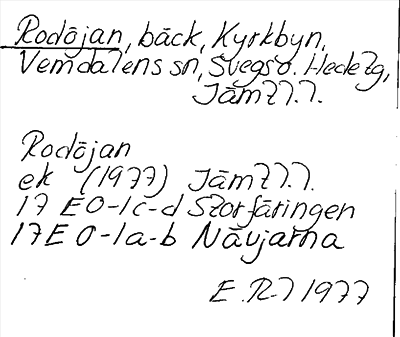 Rodöjan, bäck, Kyrkbyn,
Vemdalens sn, Svegs o. Hede tg,
Jämtl. l.
Rodöjan
ek (1977) Jämtl. l.
17 E 0-1c-d Storfäringen
17E 0-1a-b Nävjarna
E. R-J 1977